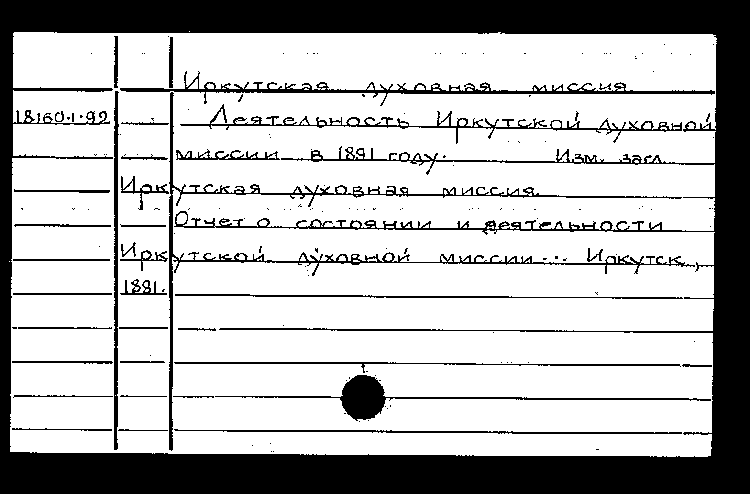 Иркутская духовная миссия
18160.1.92 Деятельность Иркутской духовной
миссии в 1891 году. Изм. загл.
Иркутская духовная миссия.
Отчет о состоянии и деятельности
Иркутской духовной миссии... Иркутск,
1881.